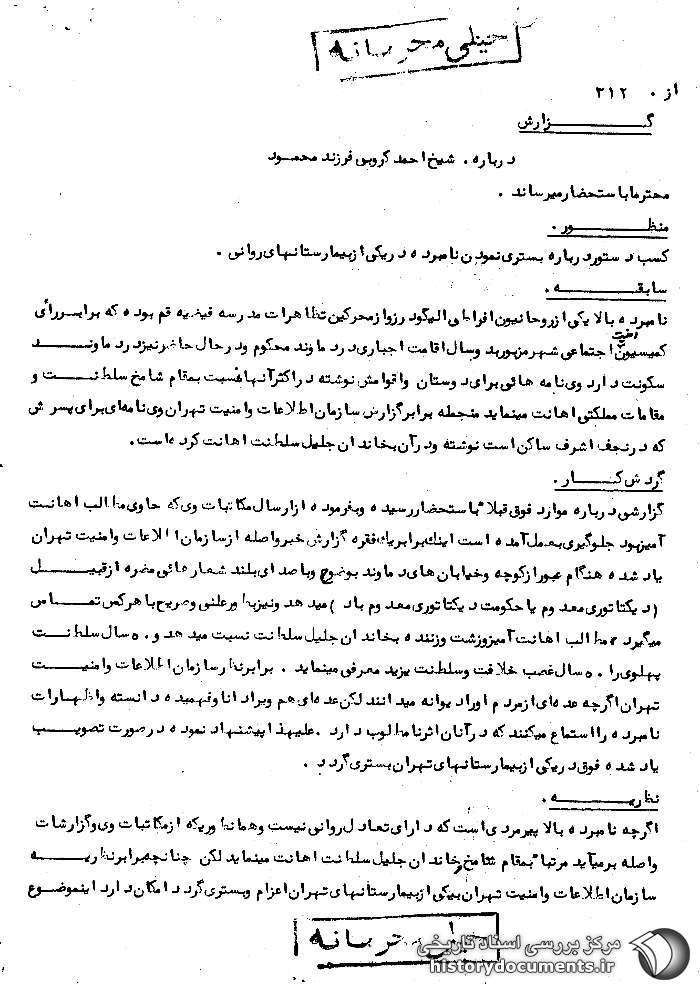 خیلی محرمانه
از ۰ ۳۱۲
گزارش
درباره . شیخ احمد کروبی فرزند محمود
محترما باستحضار میرساند .
منظور .
کسب دستور درباره بستری نمودن نامبرده در یکی از بیمارستانهای روانی .
سابقه .
نامبرده بالا یکی از روحانیون افراطی الیگودرز و از محرکین تظاهرات مدرسه فیضیه قم بوده که برابر رأی
کمیسیون امنیت اجتماعی شهر مزبور بدوسال اقامت اجباری در دماوند محکوم و در حال حاضر نیز در دماوند
سکونت دارد وی نامه هائی برای دوستان واقوامش نوشته در اکثر آنها نسبت بمقام شامخ سلطنت و
مقامات مملکتی اهانت مینماید منجمله برابر گزارش سازمان اطلاعات وامنیت تهران وی نامه‌ای برای پسرش
که در نجف اشرف ساکن است نوشته ودر آن بخاندان جلیل سلطنت اهانت کرده است .
گردش کار .
گزارشی درباره موارد فوق قبلا" باستحضار رسیده وبفرموده از ارسال مکاتبات وی که حاوی مطالب اهانت
آمیزبود جلوگیری بعمل آمده است اینک برابر یک فقره گزارش خبر واصله از سازمان اطلاعات وامنیت تهران
یاد شده هنگام عبور از کوچه وخیابان های دماوند بوضوح وبا صدای بلند شعارهائی مضره از قبیل
(دیکتاتوری معدوم یا حکومت دیکتاتوری معدوم باد ) میدهد ونیز بطور علنی وصریح با هرکس تماس
میگیرد مطالب اهانت آمیز وزشت وزننده بخاندان جلیل سلطنت نسبت میدهد و ۵۰ سال سلطنت
پهلوی را ۵۰ سال غصب خلافت وسلطنت یزید معرفی مینماید . برابر نظر سازمان اطلاعات وامنیت
تهران اگرچه عده‌ای از مردم او را دیوانه میدانند لکن عده‌ای هم ویرا دانا وفهمیده دانسته واظهارات
نامبرده را استماع میکنند که در آنان اثر نامطلوب دارد . علیهذا پیشنهاد نموده در صورت تصویب
یاد شده فوق در یکی از بیمارستانهای تهران بستری گردد .
نظریه .
اگرچه نامبرده بالا پیرمردی است که دارای تعادل روانی نیست وهمانطوریکه از مکاتبات وی وگزارشات
واصله برمیآید مرتبا" بمقام شامخ و خاندان جلیل سلطنت اهانت مینماید لکن چنانچه برابر نظریه
سازمان اطلاعات وامنیت تهران بیکی از بیمارستانهای تهران اعزام وبستری گردد امکان دارد اینموضوع
خیلی محرمانه
مرکز بررسی اسناد تاریخی
historydocuments.ir